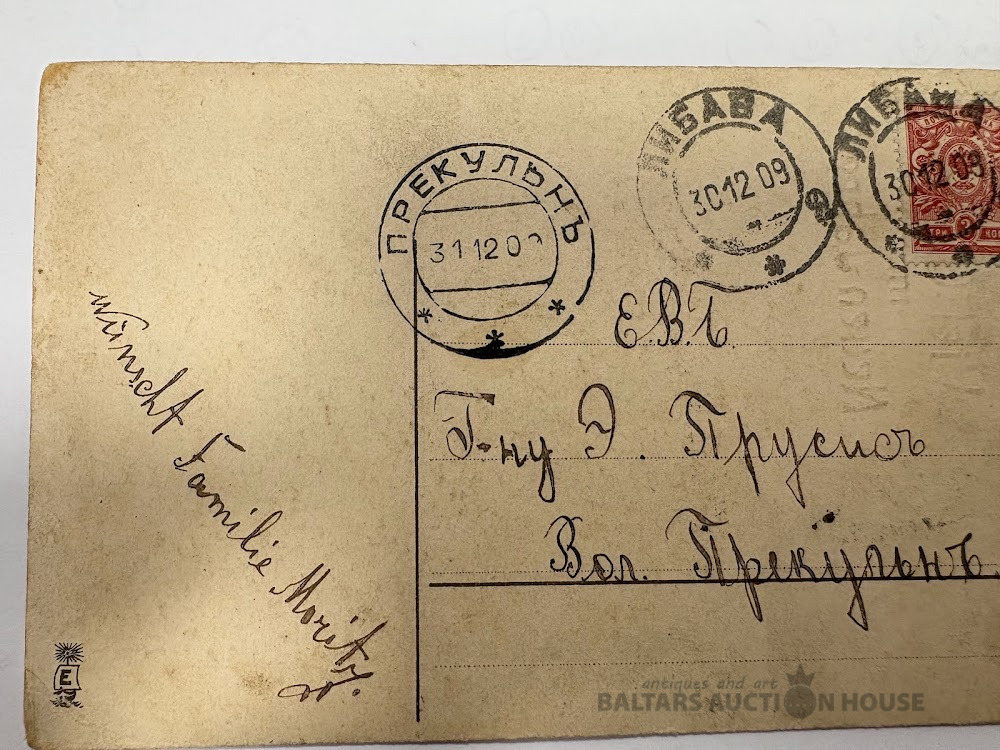 ЛИБАВА
30 12 09
2
ЛИБАВА
30 12 09
ТРИ 3 КОП
ПРЕКУЛЬНЪ
31 12 09
Е.В.Б
Г-ну Э. Прусисъ
Вол. Прекульнъ
wünscht Familie Moritz.
E
antiques and art
BALTARS AUCTION HOUSE